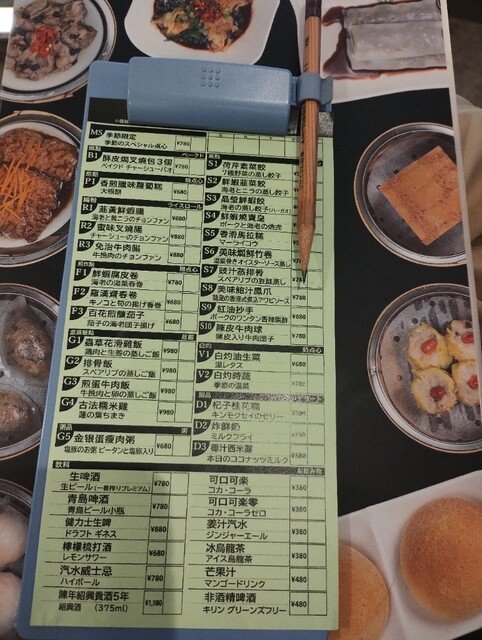 MS 季節限定 ¥780
季節のスペシャル点心
B1 酥皮焗叉燒包3個 ¥780
ベイクド チャーシューパオ
P1 香煎臘味蘿蔔糕 ¥680
大根餅
R1 韮黃鮮蝦腸 ¥880
海老と黄ニラのチョンファン
R2 蜜味叉燒腸 ¥880
チャーシューのチョンファン
R3 免治牛肉腸 ¥880
牛挽肉のチョンファン
F1 鮮蝦腐皮卷 ¥680
海老の湯葉春巻
F2 羅漢齋春卷 ¥680
キノコと筍の揚げ春巻
F3 百花煎釀茄子 ¥680
茄子の海老団子揚げ
G1 蟲草花滑雞飯 ¥980
鶏肉と生姜の蒸しご飯
G2 排骨飯 ¥980
スペアリブの蒸しご飯
G3 煎蛋牛肉飯 ¥980
牛挽肉と卵の蒸しご飯
G4 古法糯米雞 ¥980
蓮の葉ちまき
粥品 粥
G5 金銀蛋瘦肉粥 ¥680
塩豚のお粥 ピータンと塩卵入り
S1
7種野菜の蒸し餃子
S2 鮮蝦韮菜餃
海老とニラの蒸し餃子
S3 晶瑩鮮蝦餃
海老の蒸し餃子(ハーガオ)
S4 鮮蝦燒賣皇
ポークと海老の焼売
S5 香滑馬拉糕
マーラーコウ
S6 美味鮮竹卷
湯葉巻きオイスターソース蒸し
S7 豉汁蒸排骨
スペアリブの豉鼓蒸し
S8 美味鮑汁鳳爪 ¥780
S9 紅油抄手 ¥680
ポークのワンタン香辣葉酢
S10 陳皮牛肉球 ¥780
陳皮入り牛肉団子
V1 白灼油生菜 ¥680
湯レタス
V2 白灼時蔬 ¥780
季節の温菜
甜品 デザート
D1 杞子桂花糕
キンモクセイのゼリー
D2 炸鮮奶
ミルクフライ
D3 椰汁西米露 ¥580
本日のココナッツミルク
飲料 お飲み物
生啤酒 ¥780
生ビール(一番搾りプレミアム)
青島啤酒 ¥780
青島ビール小瓶
健力士生啤 ¥880
ドラフト ギネス
檸檬梳打酒 ¥680
レモンサワー
汽水威士忌 ¥780
ハイボール
陳年紹興貴酒5年 ¥1,980
紹興酒 (375ml)
可口可樂 ¥380
コカ・コーラ
可口可樂零 ¥380
コカ・コーラゼロ
姜汁汽水 ¥380
ジンジャーエール
冰烏龍茶 ¥380
アイス烏龍茶
芒果汁 ¥480
マンゴードリンク
非酒精啤酒 ¥480
キリン グリーンズフリー